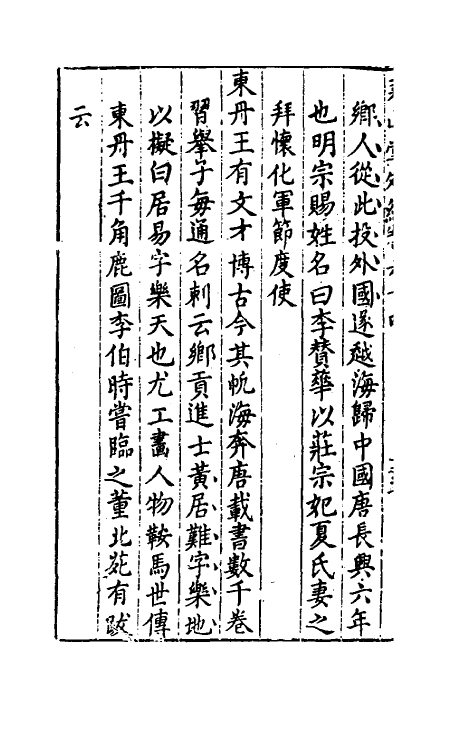 鄉人從此投外國遂越海歸中國唐長興六年
也明宗賜姓名曰李贊華以莊宗妃夏氏妻之
拜懷化軍節度使
東丹王有文才博古今其帆海奔唐載書數千卷
習舉子每通名刺云鄉貢進士黃居難字樂地
以擬白居易字樂天也尤工畵人物鞍馬世傳
東丹王千角鹿圖李伯時嘗臨之董北苑有跋
云